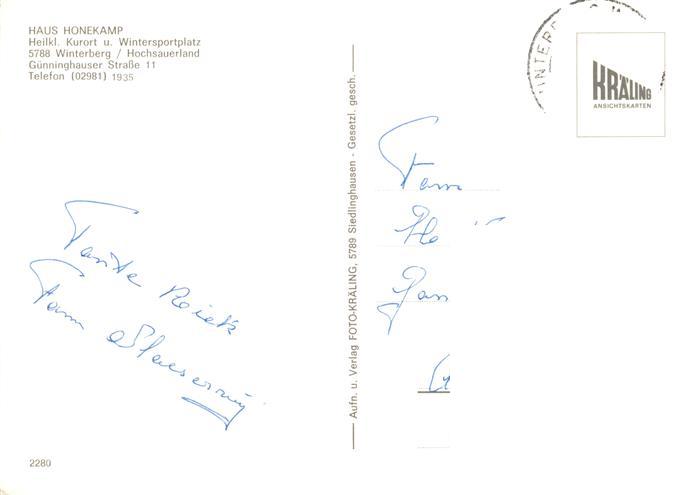 HAUS HONEKAMP
Heilkl. Kurort u. Wintersportplatz
5788 Winterberg / Hochsauerland
Günninghauser Straße 11
Telefon (02981) 1935
Tante Reick
Fam
2280
Aufn. u. Verlag FOTO-KRÄLING, 5789 Siedlinghausen - Gesetzl. gesch.
WINTERB
KRÄLING
ANSICHTSKARTEN
Fam
He
Jan